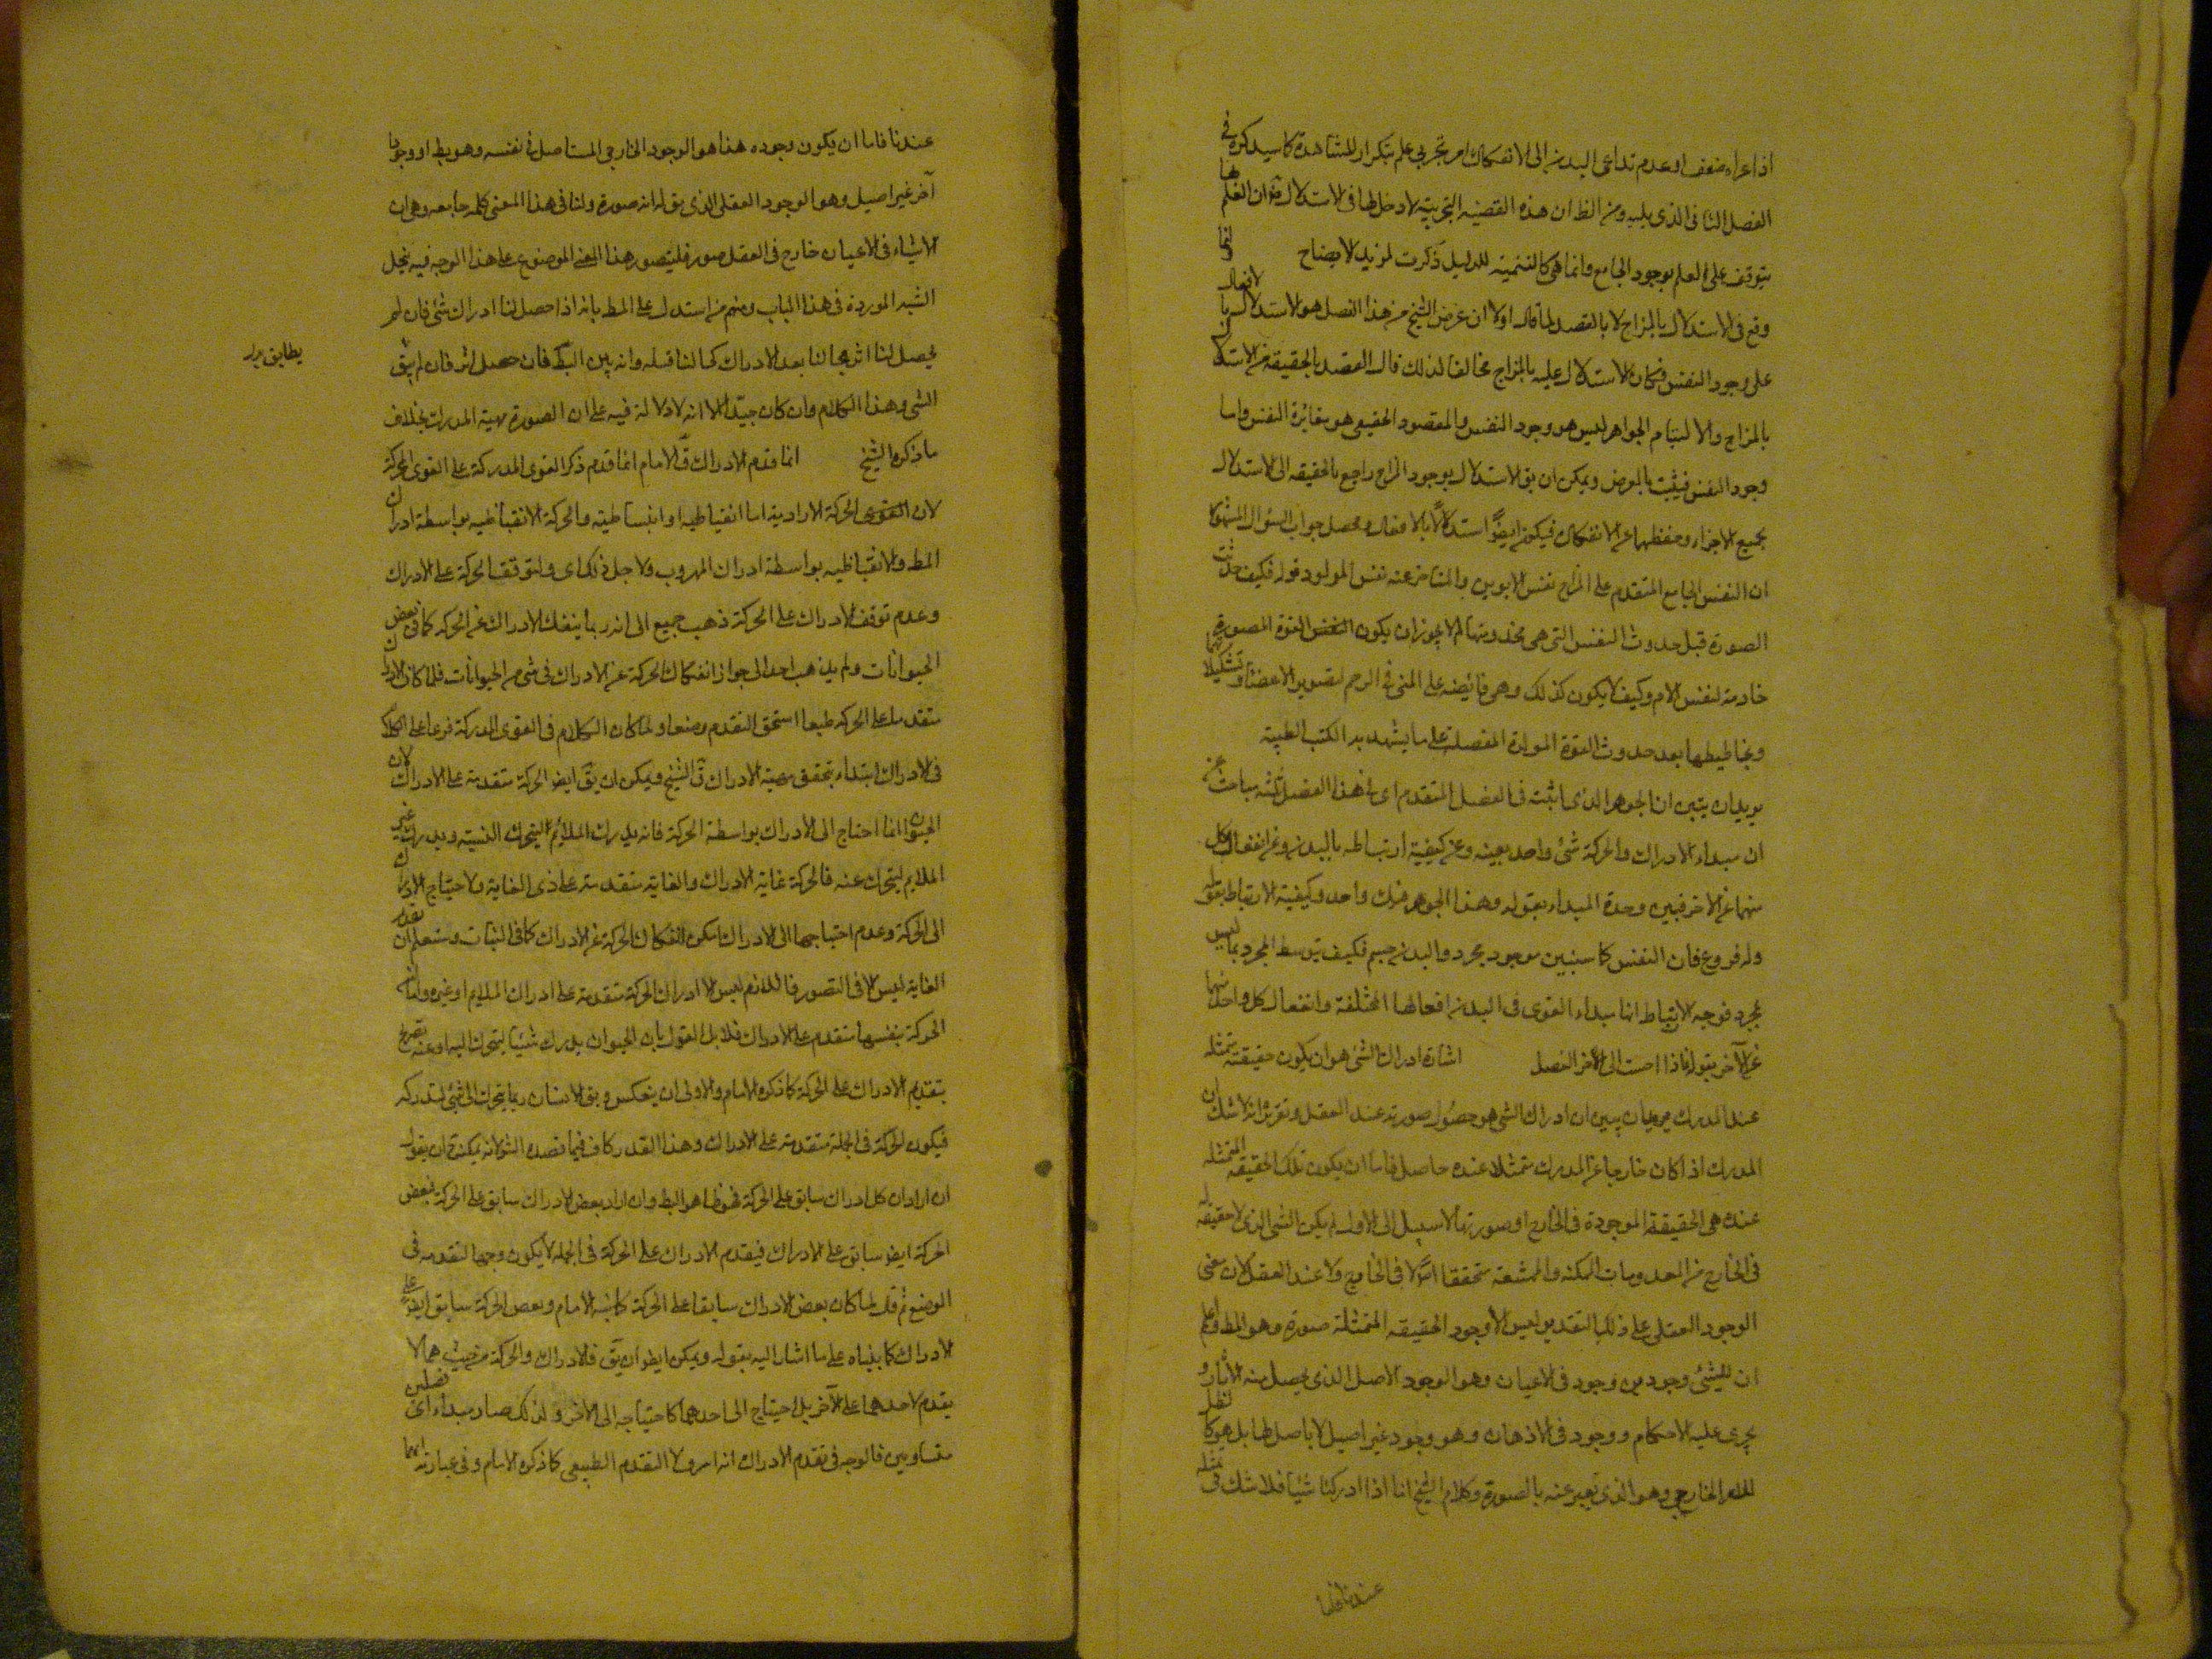 اذا عراه ضعف او عدم تداعى البدن الى الانفكاك امر تجربى علم بتكرار المشاهدة كما سيذكره فى
الفصل الثانى الذى يليه ومن الظ ان هذه القضيه التجربيه لا دخل لها فى الاستدلال فان العلم بها
يتوقف على العلم بوجود الجامع وانما هى كالتتمية للدليل ذكرت لمزيد الايضاح وانما
وقع فى الاستدلال بالمزاج لا بالقصد لما قال اولا ان غرض الشيخ من هذا الفصل هو الاستدلال بالافعال
على وجود النفس فكان الاستدلال عليه بالمزاج مخالفا لذلك قال القصد بالحقيقه من الاستدلال
بالمزاج والالتيام الجواهر ليس هو وجود النفس والمقصود الحقيقى هو مغايرة النفس واما
وجود النفس فيثبت بالعرض ويمكن ان يق الاستدلال بوجود المزاج راجع بالحقيقه الى الاستدلال
بجميع الاجزاء وحفظها عن الانفكاك فيكون ايضا استدلالا بالافعال ومحصل جواب السؤال المشهور
ان النفس الجامع المتقدم على المزاج نفس الابوين والمتاخر عنه نفس المولود قوله فكيف حدثت
الصورة قبل حدوث النفس التى هى مخدومتها لم لا يجوز ان يكون القوة المصورة
خادمة لنفس الام وكيف لا يكون كذلك وهى فائضه على المنى فى الرحم لتصوير الاعضاء وتشكيلها
وتخاطيطها بعد حدوث القوة المولدة المفصلة على ما يشهد به الكتب الطبيه
يريد ان يتبين ان الجوهر الذى اثبته فى الفصل المتقدم اى فى هذا الفصل ثلثه مباحث عن
ان مبداء الادراك والحركة شئ واحد بعينه وعن كيفية ارتباطه بالبدن وعن انفعال كل
منهما عن الاخر فبين وحدة المبداء بقوله وهذا الجوهر فيك واحد وكيفية الارتباط بقوله
وله فروع فان النفس كما سنبين موجود مجرد والبدن جسم فكيف يتوسط المجرد بما ليس
بمجرد فوجه الارتباط انها مبداء القوى فى البدن افعالها المختلفة وانفعال كل واحد منهما
عن الآخر بقوله فاذا احست الى آخر الفصل اشارة ادراك الشئ هو ان يكون حقيقته متمثلة
عند المدرك يريد ان يبين ان ادراك الشئ هو حصول صورته عند العقل وتقريره انه لا شك ان
المدرك اذا كان خارجا عن المدرك متمثلا عنده حاصل فاما ان يكون تلك الحقيقة المتمثله
عنده هى الحقيقة الموجودة فى الخارج او صورتها لا سبيل الى الاول والا لم يكن الشئ الذى لا حقيقة له
فى الخارج من المعدومات الممكنه والممتنعه متحققا اصلا لا فى الخارج ولا عند العقل لان معنى
الوجود العقلى على ذلك التقدير ليس الا وجود الحقيقه المتمثلة صورة وهو المط واعلم
ان للشئ وجودين وجود فى الاعيان وهو الوجود الاصل الذى يحصل منه الاثار و
يجرى عليه الاحكام ووجود فى الاذهان وهو وجود غير اصيل لا باصل لها بل هو كالظل
للامر الخارجى وهو الذى يعبر عنه بالصورة وكلام الشيخ انا اذا ادركنا شيئا فلا شك فى تمثله
عندنا فاما
عندنا فاما ان يكون وجوده هذا هو الوجود الخارجى المستاصل فى نفسه وهو بط او وجودا
آخر غير اصيل وهو الوجود العقلى الذى يق له انه صورة ولنا فى هذا المعنى كلمه جامعه وهى ان
الاشياء فى الاعيان خارج فى العقل صور فليتصور هذا المعنى الموضوع على هذا الوجه فيه ينحل
الشبه الموردة فى هذا الباب ومنهم من استدل على المط بانه اذا حصل لنا ادراك شئ فان لم
يحصل لنا اثر بحالنا بعد الادراك كحالنا قبله وانه بين البط فان حصل اثر فان لم يبق
يطابق
الشئ وهذا الكلام وان كان جيدا الا انه لا دلالة فيه على ان الصورة مهية المدرك بخلاف
ما ذكره الشيخ انما قدم الادراك ق الامام انما قدم ذكر القوى المدركة على القوى المحركة
لان الحركة الارادية اما انقباضيه او انبساطيه والحركة الانقباضيه بواسطة ادراك
المط والانقباضيه بواسطة ادراك المهروب ولاجل ذلك اى ولتوقف الحركة على الادراك
وعدم توقف الادراك على الحركة ذهب جميع الى انه ربما ينفك الادراك عن الحركه كما فى بعض
الحيوانات ولم يذهب احد الى جواز انفكاك الحركة عن الادراك فى شئ من الحيوانات فلما كان الادراك
متقدما على الحركه طبعا استحق التقدم وضعا ولما كان الكلام فى القوى المدركة فرعا على الكلام
فى الادراك ابتداء بتحقق مهية الادراك ق الشيخ ويمكن ان يق ايضا الحركة متقدمة على الادراك لان
الحيوان انما احتاج الى الادراك بواسطة الحركة فانه يدرك الملايم ليتحرك اليه ويدرك غير
الملايم ليتحرك عنه فالحركة غاية الادراك والغاية متقدمة على ذى الغاية ولاحتياج الادراك
الى الحركة وعدم احتياجها الى الادراك امكن انفكاك الحركة عن الادراك كما فى النبات وستعلم ان تقدم
الغاية ليس الا فى التصور فاللازم ليس الا ادراك الحركة متقدمة على ادراك الملايم او غيره واما ان
الحركة بنفسها متقدم على الادراك فلا بل القول بان الحيوان يدرك شيئا ليتحرك اليه او عنه تصريح
بتقديم الادراك على الحركة كما ذكره الامام والاولى ان ينعكس ويق الانسان ربما يتحرك الى شئ ليدركه
فيكون الحركة فى الجملة متقدمة على الادراك وهذا القدر كاف فيما قصده الش لانه يمكنه ان يقول
ان اراد ان كل ادراك سابق على الحركة فهو ظاهر البط وان اراد بعض الادراك سابق على الحركة فبعض
الحركة ايضا سابق على الادراك فيقدم الادراك على الحركة فى الجمله لا يكون وجها لتقدمه فى
الوضع ثم قد لما كان بعض الادراك سابقا على الحركة كما بينه الامام وبعض الحركة سابق ايضا على
الادراك كما بيناه على ما اشار اليه بقوله ويمكن ايضا ان يق فالادراك والحركة من حيث هما لا
يقدم لاحدهما على الآخر بل احتياج الى احدهما كاحتياجه الى الآخر ولذلك صار مبداء اى فصلين
متساويين فالوجه فى تقدم الادراك انه اشرف لا التقدم الطبيعى كما ذكره الامام وفى عبارته ايهما